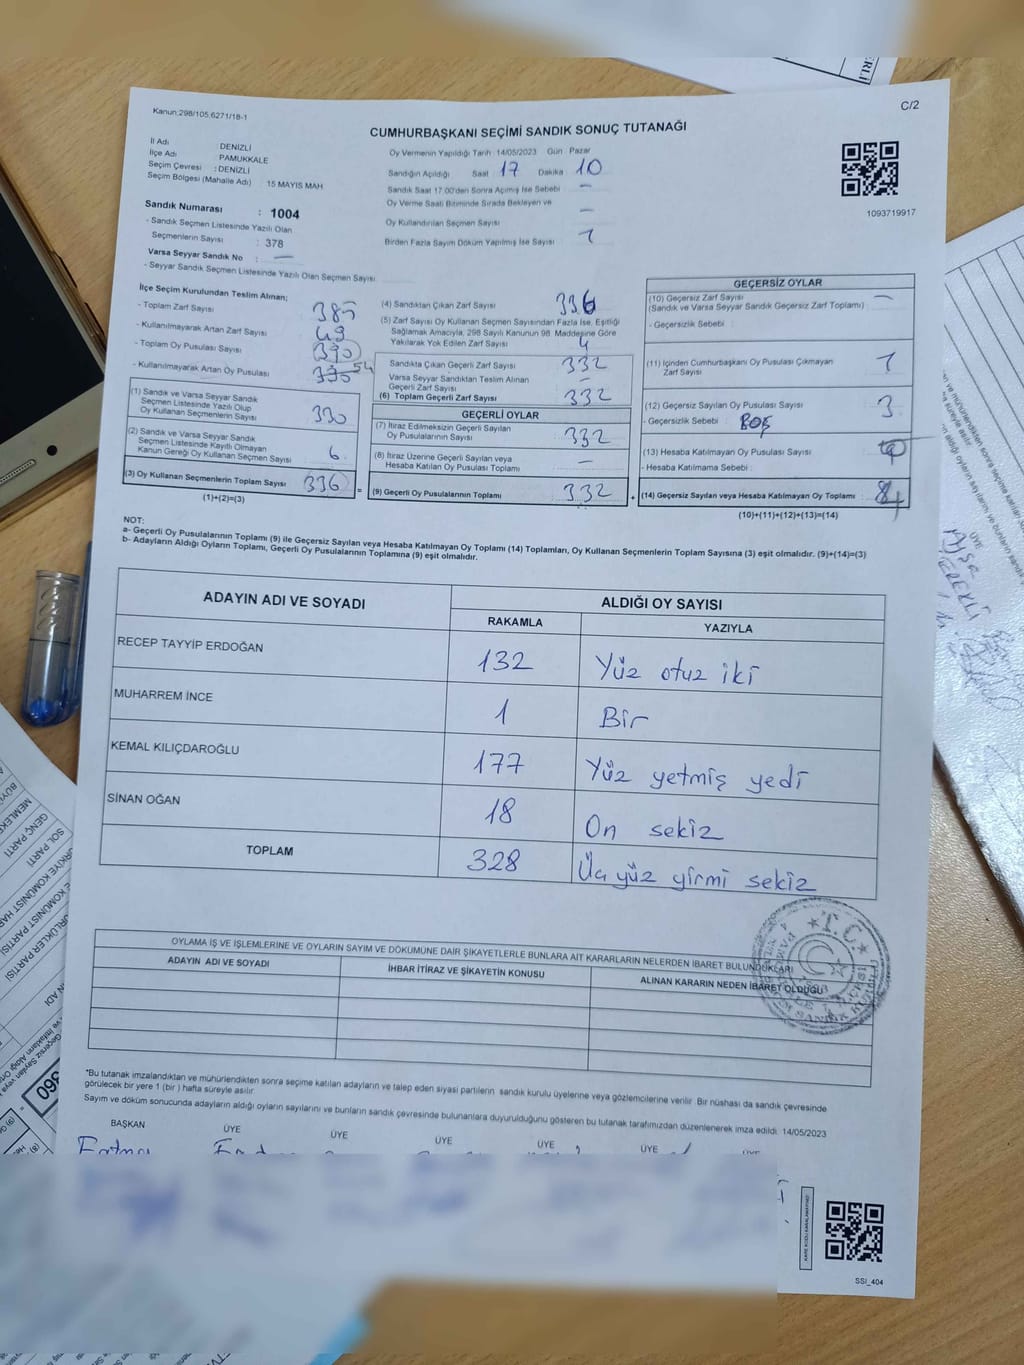 ERLİ
Kanun:298/105,6271/18-1
C/2
CUMHURBAŞKANI SEÇİMİ SANDIK SONUÇ TUTANAĞI
İl Adı DENİZLİ
İlçe Adı PAMUKKALE
Seçim Çevresi : DENİZLİ
Seçim Bölgesi (Mahalle Adı) 15 MAYIS MAH
Oy Vermenin Yapıldığı Tarih :14/05/2023 Gün Pazar
Sandığın Açıldığı Saat 17 Dakika 10
Sandık Saat 17:00'den Sonra Açılmış İse Sebebi —
Oy Verme Saati Bitiminde Sırada Bekleyen ve
Oy Kullandırılan Seçmen Sayısı —
Birden Fazla Sayım Döküm Yapılmış İse Sayısı 1
1093719917
Sandık Numarası : 1004
- Sandık Seçmen Listesinde Yazılı Olan
Seçmenlerin Sayısı : 378
Varsa Seyyar Sandık No : —
- Seyyar Sandık Seçmen Listesinde Yazılı Olan Seçmen Sayısı
İlçe Seçim Kurulundan Teslim Alınan;
- Toplam Zarf Sayısı 385
- Kullanılmayarak Artan Zarf Sayısı 49
- Toplam Oy Pusulası Sayısı 390
- Kullanılmayarak Artan Oy Pusulası 54
(1) Sandık ve Varsa Seyyar Sandık
Seçmen Listesinde Yazılı Olup
Oy Kullanan Seçmenlerin Sayısı 330
(2) Sandık ve Varsa Seyyar Sandık
Seçmen Listesinde Kayıtlı Olmayan
Kanun Gereği Oy Kullanan Seçmen Sayısı 6
(3) Oy Kullanan Seçmenlerin Toplam Sayısı 336
(1)+(2)=(3)
(4) Sandıktan Çıkan Zarf Sayısı 336
(5) Zarf Sayısı Oy Kullanan Seçmen Sayısından Fazla İse, Eşitliği
Sağlamak Amacıyla, 298 Sayılı Kanunun 98. Maddesine Göre
Yakılarak Yok Edilen Zarf Sayısı 4
Sandıkta Çıkan Geçerli Zarf Sayısı 332
Varsa Seyyar Sandıktan Teslim Alınan
Geçerli Zarf Sayısı —
(6) Toplam Geçerli Zarf Sayısı 332
GEÇERLİ OYLAR
(7) İtiraz Edilmeksizin Geçerli Sayılan
Oy Pusulalarının Sayısı 332
(8) İtiraz Üzerine Geçerli Sayılan veya
Hesaba Katılan Oy Pusulası Toplamı —
= (9) Geçerli Oy Pusulalarının Toplamı 332
GEÇERSİZ OYLAR
(10) Geçersiz Zarf Sayısı —
(Sandık ve Varsa Seyyar Sandık Geçersiz Zarf Toplamı) :
- Geçersizlik Sebebi :
(11) İçinden Cumhurbaşkanı Oy Pusulası Çıkmayan
Zarf Sayısı 1
(12) Geçersiz Sayılan Oy Pusulası Sayısı 3
- Geçersizlik Sebebi : BOŞ
(13) Hesaba Katılmayan Oy Pusulası Sayısı
- Hesaba Katılmama Sebebi :
+ (14) Geçersiz Sayılan veya Hesaba Katılmayan Oy Toplamı
(10)+(11)+(12)+(13)=(14)
NOT:
a- Geçerli Oy Pusulalarının Toplamı (9) ile Geçersiz Sayılan veya Hesaba Katılmayan Oy Toplamı (14) Toplamları, Oy Kullanan Seçmenlerin Toplam Sayısına (3) eşit olmalıdır. (9)+(14)=(3)
b- Adayların Aldığı Oyların Toplamı, Geçerli Oy Pusulalarının Toplamına (9) eşit olmalıdır.
ADAYIN ADI VE SOYADI ALDIĞI OY SAYISI
RAKAMLA YAZIYLA
RECEP TAYYİP ERDOĞAN 132 Yüz otuz iki
MUHARREM İNCE 1 Bir
KEMAL KILIÇDAROĞLU 177 Yüz yetmiş yedi
SİNAN OĞAN 18 On sekiz
TOPLAM 328 Üç yüz yirmi sekiz
T.C.
OYLAMA İŞ VE İŞLEMLERİNE VE OYLARIN SAYIM VE DÖKÜMÜNE DAİR ŞİKAYETLERLE BUNLARA AİT KARARLARIN NELERDEN İBARET BULUNDUKLARI
ADAYIN ADI VE SOYADI İHBAR İTİRAZ VE ŞİKAYETİN KONUSU ALINAN KARARIN NEDEN İBARET OLDUĞU
*Bu tutanak imzalandıktan ve mühürlendikten sonra seçime katılan adayların ve talep eden siyasi partilerin sandık kurulu üyelerine veya gözlemcilerine verilir. Bir nüshası da sandık çevresinde
görülecek bir yere 1 (bir ) hafta süreyle asılır.
Sayım ve döküm sonucunda adayların aldığı oyların sayılarını ve bunların sandık çevresinde bulunanlara duyurulduğunu gösteren bu tutanak tarafımızdan düzenlenerek imza edildi. 14/05/2023
BAŞKAN ÜYE ÜYE ÜYE ÜYE ÜYE
SSİ_404
GENÇ PARTİ
SOL PARTİ
360
ÜYE